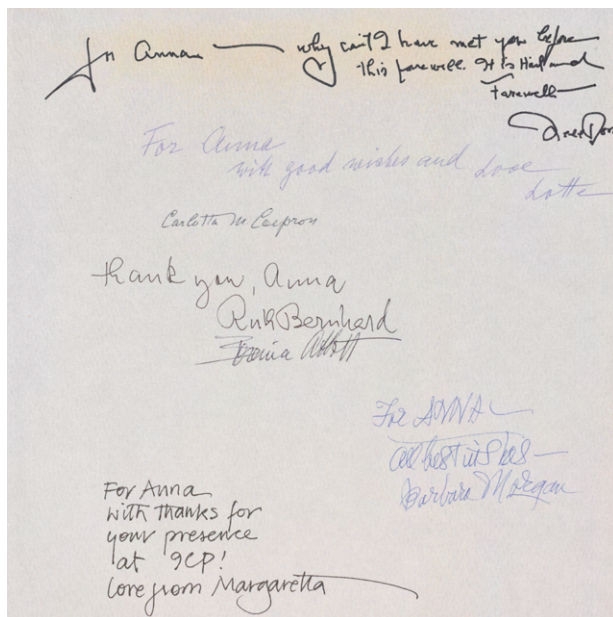 To Anna — why can't I have met you before
this farewell. It is Hail and
Farewell
For Anna
with good wishes and Love
Lotte
Carlotta M. Corpron
thank you, Anna
Ruth Bernhard
Berenice Abbott
For ANNA —
All best wishes —
Barbara Morgan
For Anna
with thanks for
your presence
at ICP!
Love from Margaretta